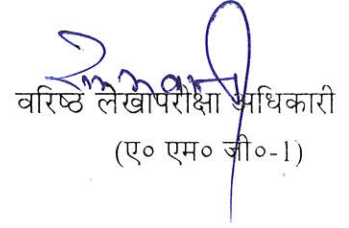 वरिष्ठ लेखापरीक्षा अधिकारी
(ए० एम० जी०-1)